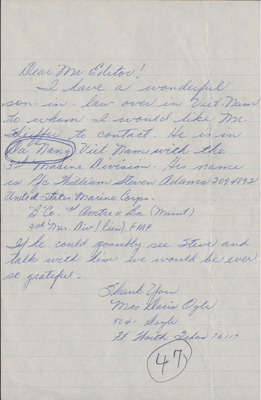 Dear Mr Editor!
I have a wonderful
son-in-law over in Viet-Nam
to whom I would like Mr.
to contact. He is in
Da Nang Viet Nam with the
3rd Marine Division. His name
is Pfc William Steven Adams 2094192
United States Marine Corps.
"B" Co. 1st
3rd Mar. Div (Rein) FMF
If he could possibly see Steve and
talk with him we would be ever
so grateful.
Thank You
Mrs Doris Ogle
Gayle
Ft Worth Texas 76117
47